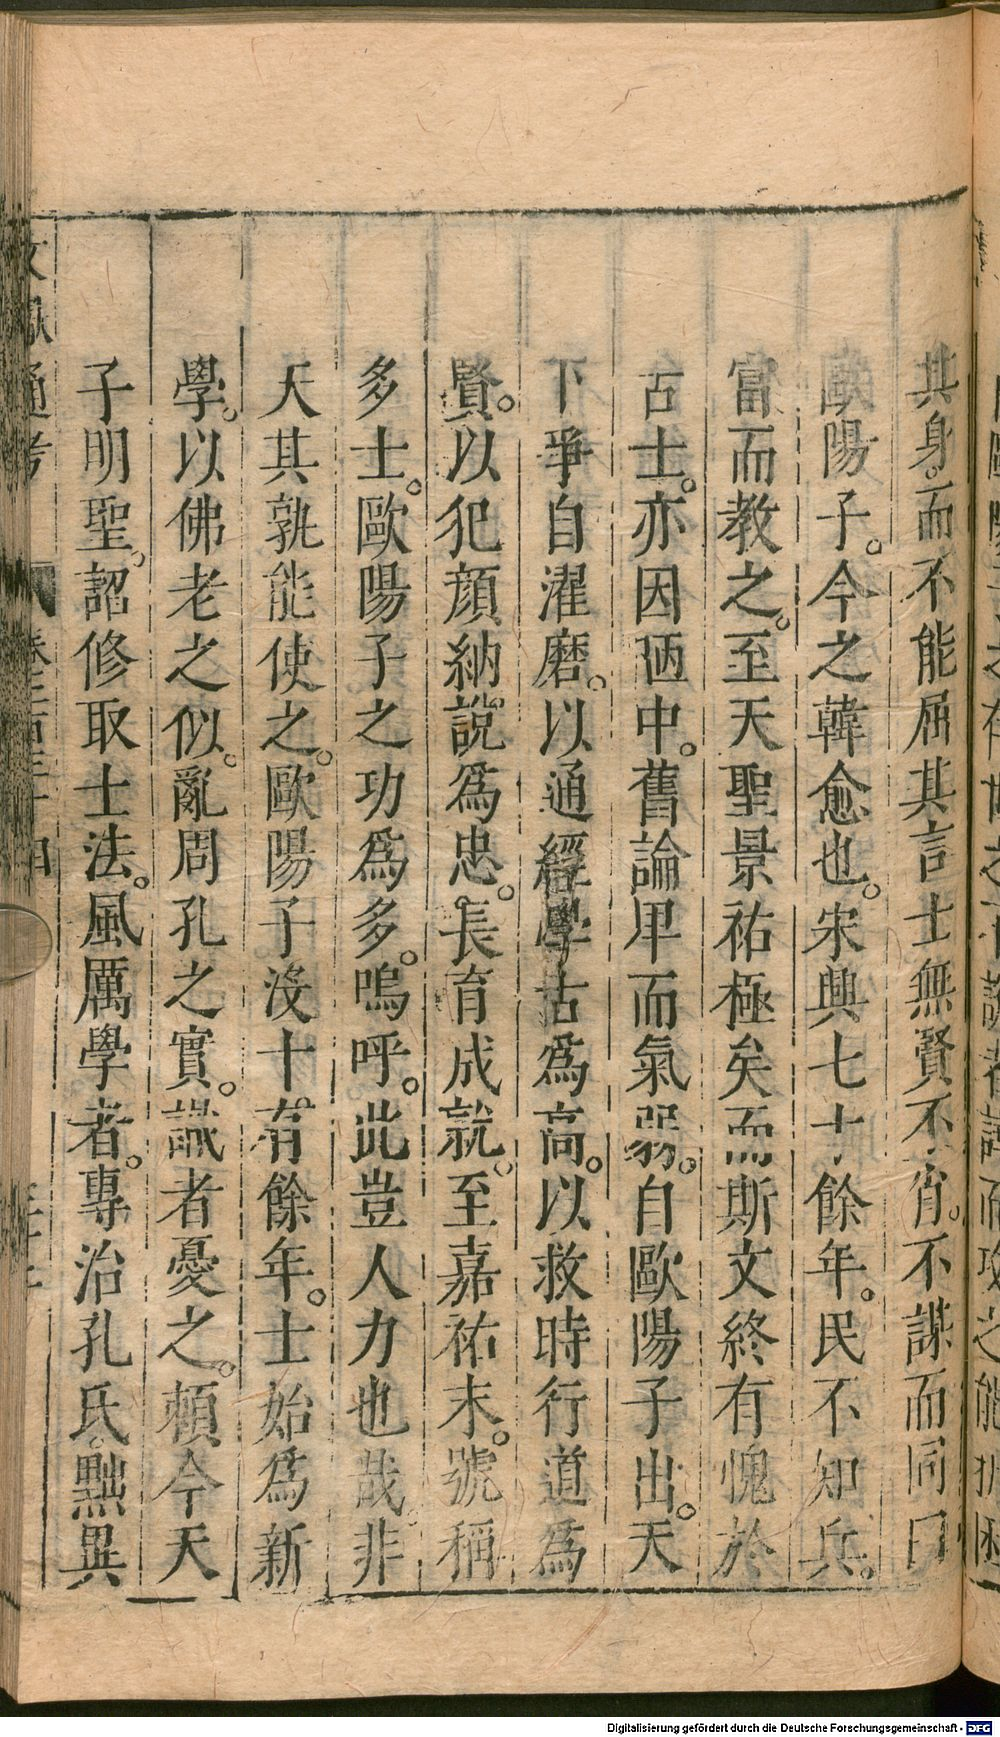 其身。而不能屈其言士無賢不肖。不謀而同曰
歐陽子。今之韓愈也。宋興七十餘年。民不知兵。
富而教之。至天聖景祐極矣而斯文終有愧於
古士。亦因陋中。舊論卑而氣弱。自歐陽子出。天
下爭自濯磨。以通經學古為高。以救時行道為
賢。以犯顏納說為忠。長育成就。至嘉祐末。號稱
多士。歐陽子之功為多。嗚呼。此豈人力也哉。非
天其孰能使之。歐陽子沒十有餘年。士始為新
學。以佛老之似。亂周孔之實。識者憂之。頼今天
子明聖。詔修取士法。風厲學者。專治孔氏。黜異
文獻通考
Digitalisierung gefördert durch die Deutsche Forschungsgemeinschaft - DFG